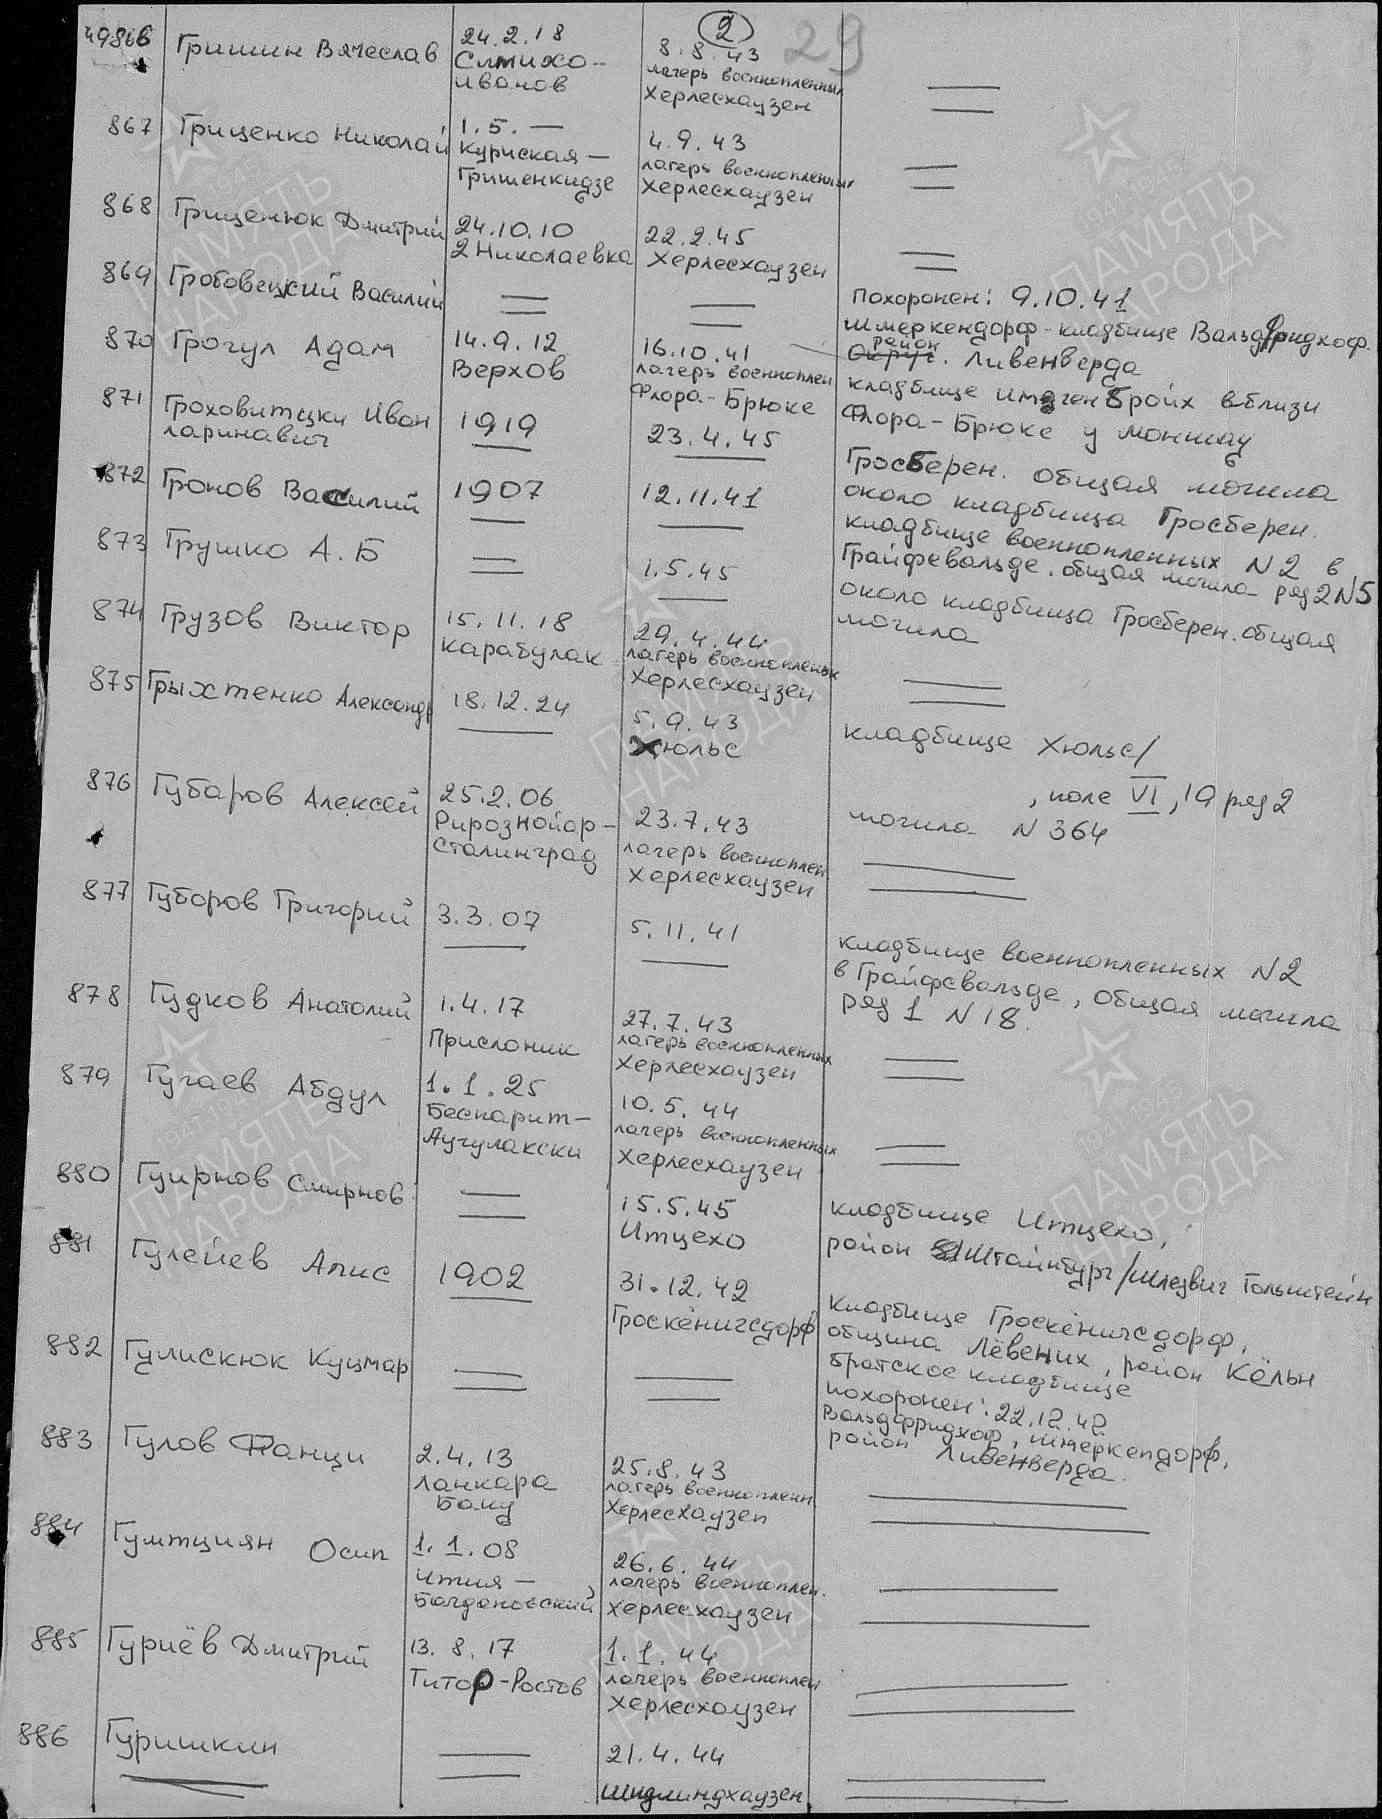 2 29
49866 Гришин Вячеслав 24.2.18 8.8.43
Слтихо- лагерь военнопленных
Иванов Херлесхаузен
867 Гриценко Николай 1.5. — 4.9.43
Куриская — лагерь военнопленных
Гришенкидзе Херлесхаузен
868 Гриценюк Дмитрий 24.10.10 22.2.45
2 Николаевка Херлесхаузен
869 Гробовецкий Василий
Похоронен: 9.10.41
Шмеркендорф - кладбище Вальдфридхоф.
район
Округ. Ливенверда
870 Грогул Адам 14.9.12 16.10.41
Верхов лагерь военноплен
Флора - Брюке
кладбище имгенбройх вблизи
Флора - Брюке у моншау
871 Гроховитцки Иван 1919 23.4.45
ларинавич
Гросберен. общая могила
около кладбища Гросберен.
872 Громов Василий 1907 12.11.41
кладбище военнопленных N 2 в
Грайфевальде. общая могила ряд 2 N5
873 Грушко А. Б 1.5.45
около кладбища Гросберен. общая
могила
874 Грузов Виктор 15.11.18 29.4.44
Карабулак лагерь военнопленных
Херлесхаузен
875 Грыхтенко Александр 18.12.24 5.9.43
Хюльс
кладбище Хюльс/
, поле VI, 19 ряд 2
могила N 364
876 Губаров Алексей 25.2.06 23.7.43
Рирознойар - лагерь военноплен
Сталинград Херлесхаузен
877 Губоров Григорий 3.3.07 5.11.41
кладбище военнопленных N 2
в Грайфсвальде, общая могила
ряд 1 N 18.
878 Гудков Анатолий 1.4.17 27.7.43
Прислоник лагерь военнопленных
Херлесхаузен
879 Гугаев Абдул 1.1.25 10.5.44
Беспарит — лагерь военнопленных
Аугулакски Херлесхаузен
880 Гуирнов Смирнов 15.5.45
Итцехо
кладбище Итцехо,
район Штайнбург/Шлезвиг Гольштейн
881 Гулейев Апис 1902 31.12.42
Гроскёнигсдорф
кладбище Гроскёнигсдорф,
община Лёвених, район Кёльн
братское кладбище
882 Гулискюк Куцмар
похоронен: 22.12.42
Вальдфридхоф, Шмеркендорф,
район Ливенверда.
883 Гулов Панци 2.4.13 25.8.43
Ланкара лагерь военнопленн
Баку Херлесхаузен
884 Гумтциян Осип 1.1.08 26.6.44
ития — лагерь военноплен.
Богдановский Херлесхаузен
885 Гуриёв Дмитрий 13.8.17 1.1.44
Титор - Ростов лагерь военноплен
Херлесхаузен
886 Гуришкин 21.4.44
Шидлингхаузен
ПАМЯТЬ
НАРОДА